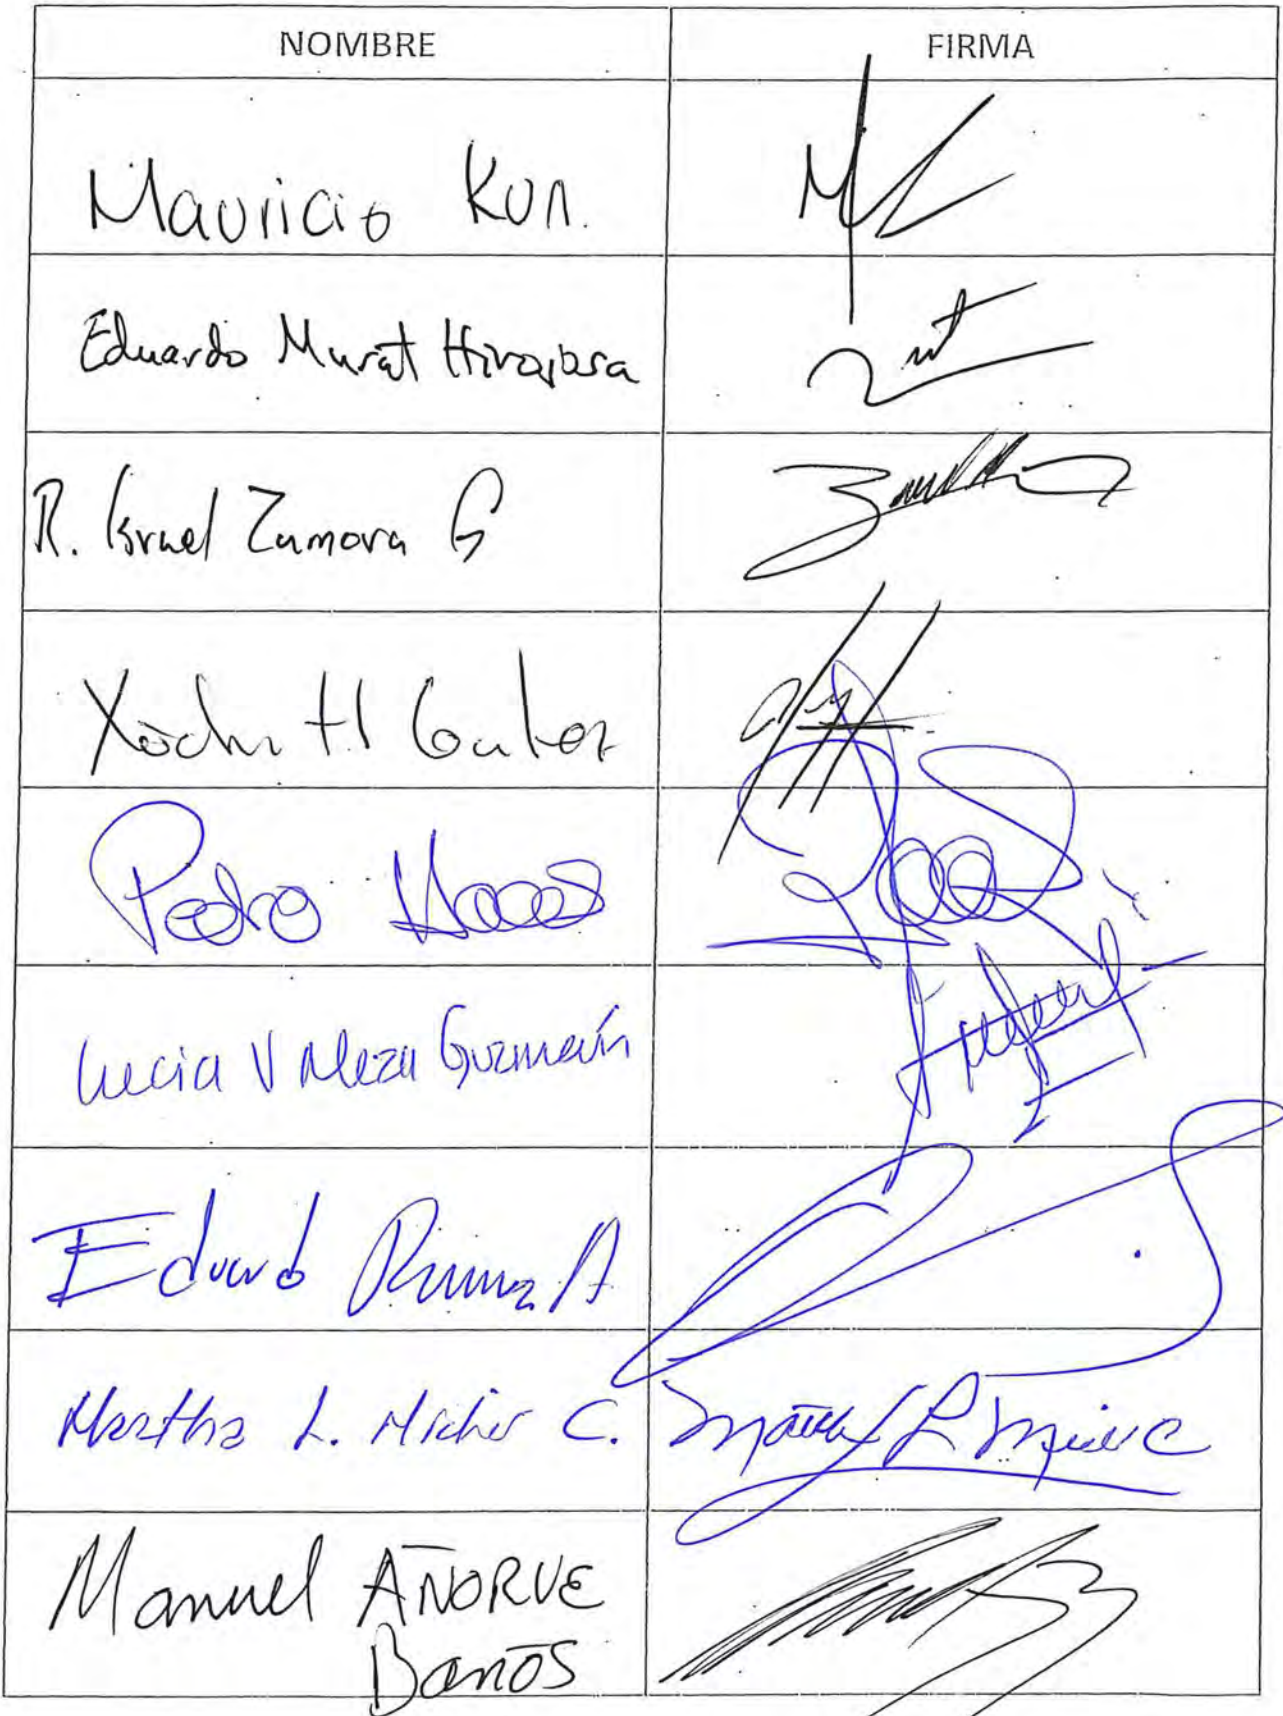 NOMBRE FIRMA
Mauricio Kuri.
Eduardo Murat Hinojosa
R. Israel Zamora G
Xochitl Galvez
Pedro Haces
Lucia V Meza Guzmán
Eduardo Ramirez A
Martha L. Micher C.
Manuel AÑORVE
BAÑOS